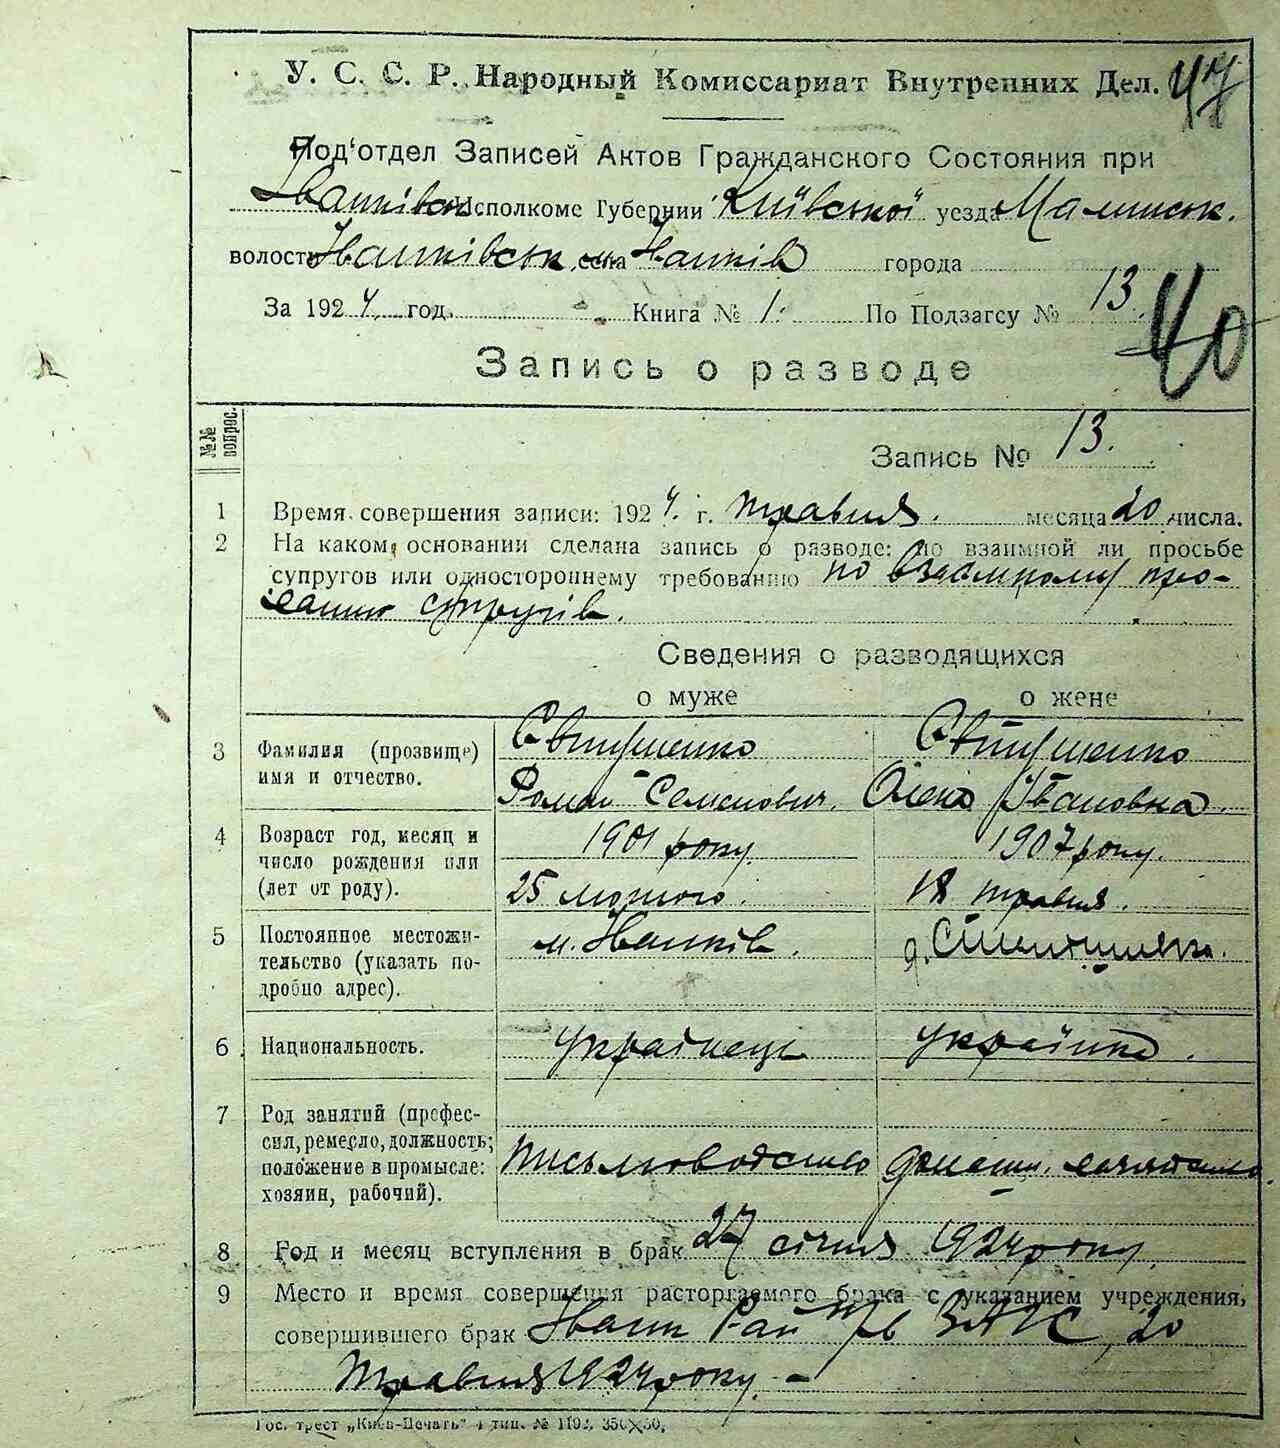 У. С. С. Р. Народный Комиссариат Внутренних Дел. 47
Под'отдел Записей Актов Гражданского Состояния при
Іванківськ Исполкоме Губернии Київської уезда Малинськ.
волость Іванківськ села Іванків города
За 1924 год. Книга № 1. По Подзагсу № 13.
40
Запись о разводе
№№ вопрос.
Запись № 13.
1 Время совершения записи: 1924 г. травня. месяца 20 числа.
2 На каком основании сделана запись о разводе: по взаимной ли просьбе
супругов или одностороннему требованию по взаємному
супругів.
Сведения о разводящихся
о муже о жене
3 Фамилия (прозвище) имя и отчество. Євтушенко Євтушенко
Роман Семенович. Олена Івановна.
4 Возраст год, месяц и число рождения или (лет от роду). 1901 року. 1907 року.
25 лютого. 18 травня.
5 Постоянное местожительство (указать подробно адрес). м. Іванків. д.
6 Национальность. українець українка.
7 Род занятий (профессия, ремесло, должность; положение в промысле: хозяин, рабочий). письмоводство
8 Год и месяц вступления в брак 27 січня 1924 року.
9 Место и время совершения расторгаемого брака с указанием учреждения,
совершившего брак Іванк Рай ЗАГС, 20
травня 1924 року. –
Гос. трест „Киев-Печать" 4 тип. № 1192, 350×50,